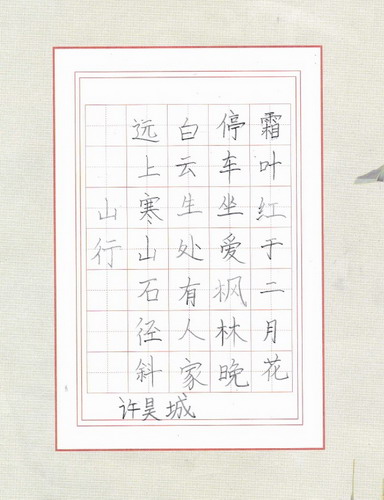 山行
远上寒山石径斜
白云生处有人家
停车坐爱枫林晚
霜叶红于二月花
许昊城